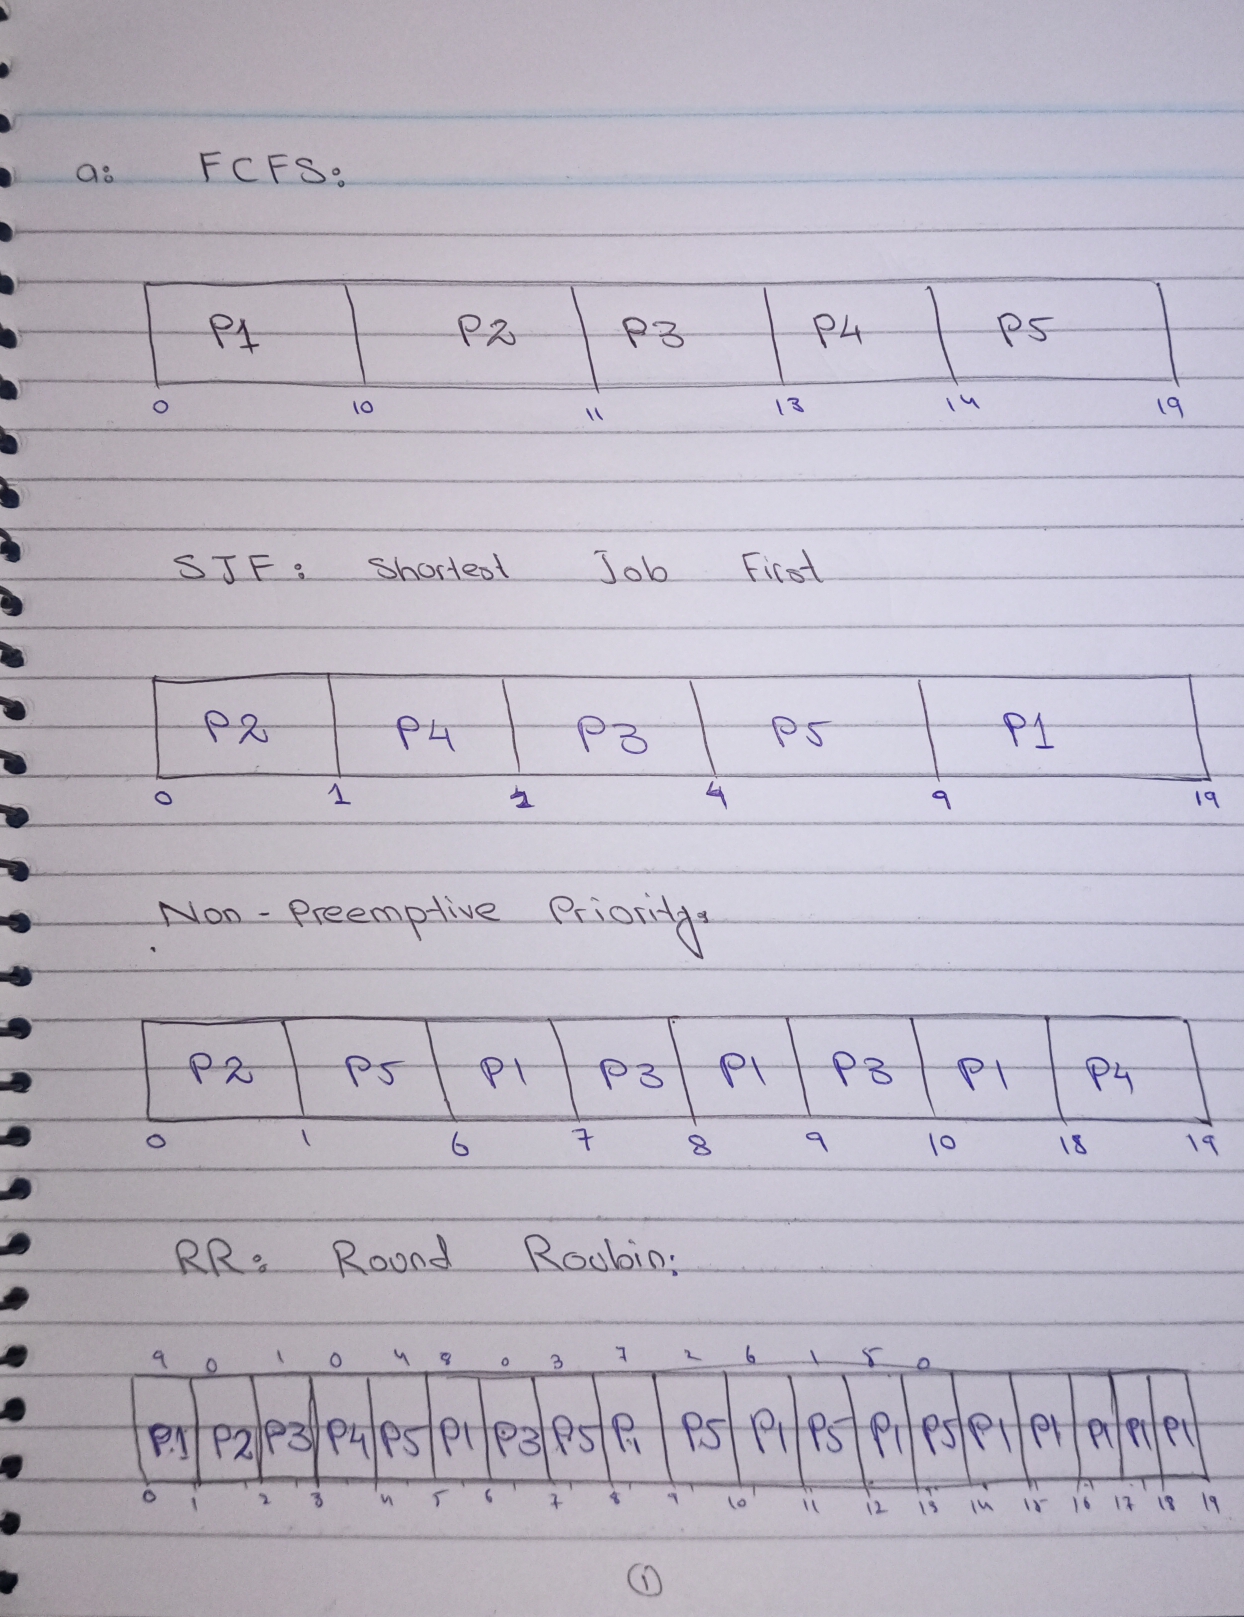 a: FCFS:
P1 P2 P3 P4 P5
0 10 11 13 14 19
SJF: Shortest Job First
P2 P4 P3 P5 P1
0 1 2 4 9 19
Non-Preemptive Priority:
P2 P5 P1 P3 P1 P3 P1 P4
0 1 6 7 8 9 10 18 19
RR: Round Roubin:
9 0 1 0 4 8 0 3 7 2 6 1 5 0
P1 P2 P3 P4 P5 P1 P3 P5 P1 P5 P1 P5 P1 P5 P1 P1 P1 P1 P1
0 1 2 3 4 5 6 7 8 9 10 11 12 13 14 15 16 17 18 19
1